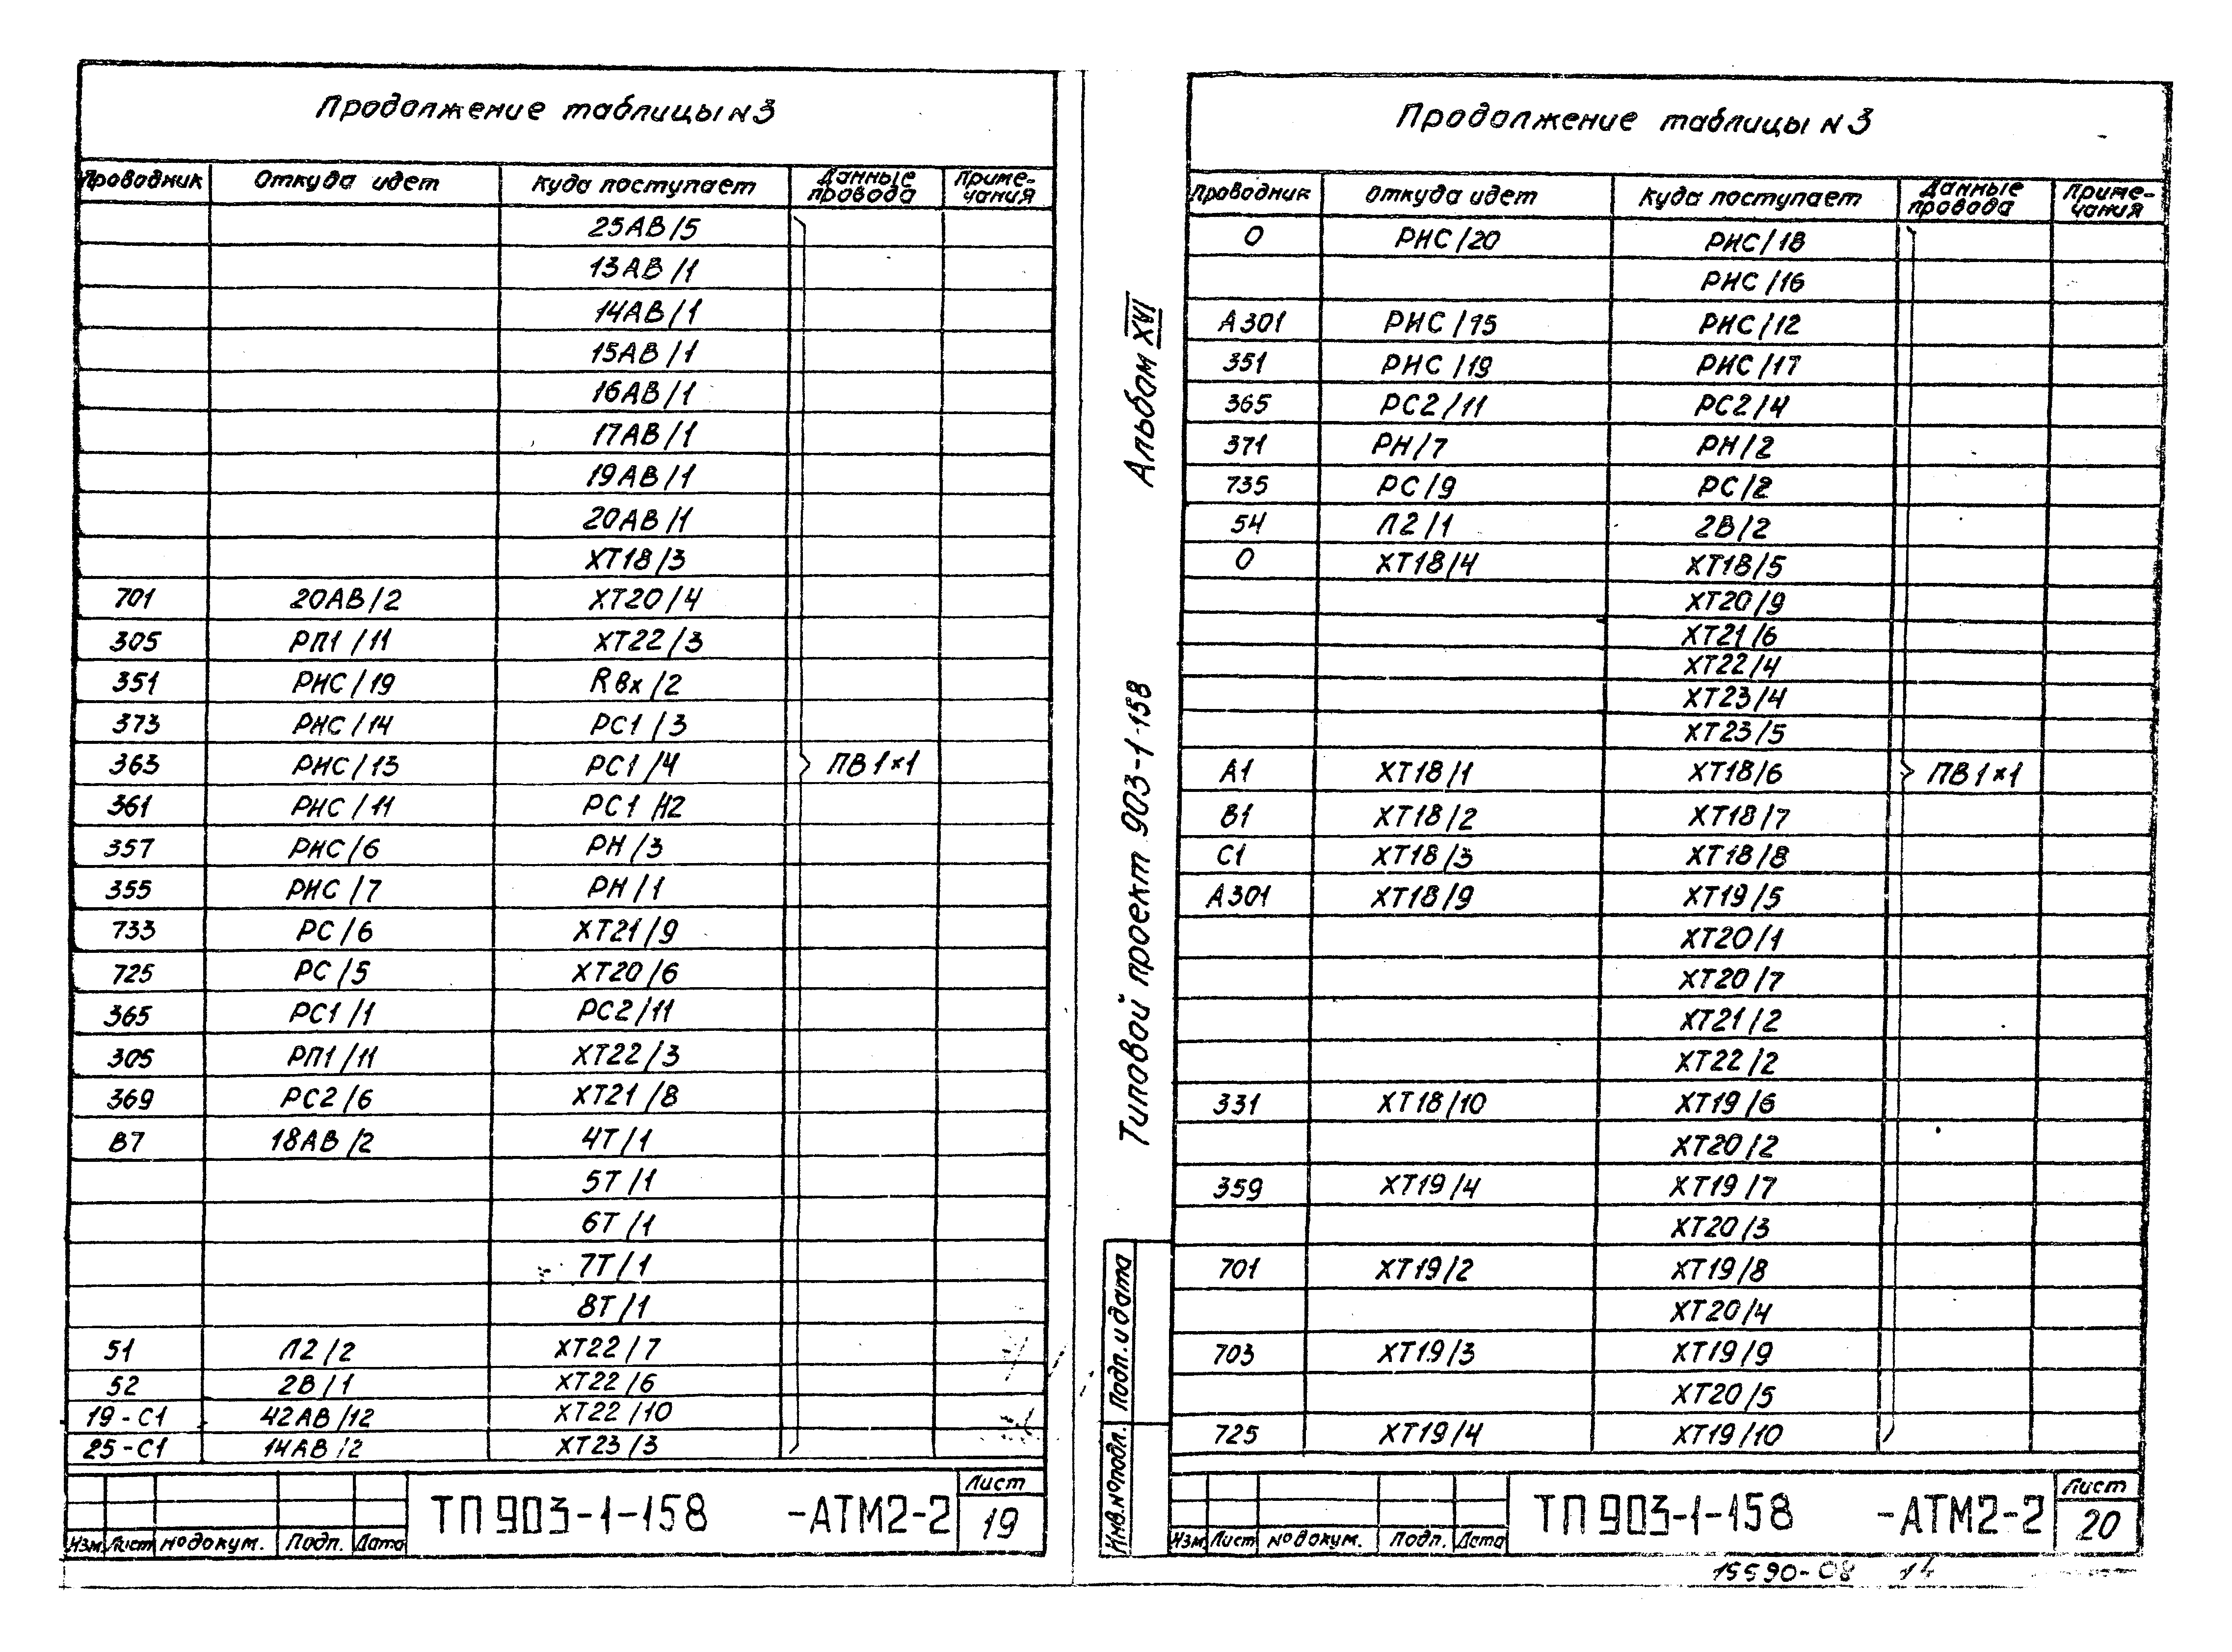 Продолжение таблицы N 3
Проводник Откуда идет Куда поступает Данные провода Приме-чания
25АВ/5
13АВ/1
14АВ/1
15АВ/1
16АВ/1
17АВ/1
19АВ/1
20АВ/1
ХТ18/3
701 20АВ/2 ХТ20/4
305 РП1/11 ХТ22/3
351 РНС/19 Rвх/2
373 РНС/14 РС1/3
363 РНС/13 РС1/4 ПВ1×1
361 РНС/11 РС1/12
357 РНС/6 РН/3
355 РНС/7 РН/1
733 РС/6 ХТ21/9
725 РС/5 ХТ20/6
365 РС1/1 РС2/11
305 РП1/11 ХТ22/3
369 РС2/6 ХТ21/8
В7 18АВ/2 4Т/1
5Т/1
6Т/1
7Т/1
8Т/1
51 Л2/2 ХТ22/7
52 2В/1 ХТ22/6
19-С1 42АВ/12 ХТ22/10
25-С1 14АВ/2 ХТ23/3
Изм. Лист № докум. Подп. Дата
ТП 903-1-158 -АТМ2-2
Лист
19
Альбом XVI
Типовой проект 903-1-158
Подп. и дата
Инв. № подл.
Продолжение таблицы N 3
Проводник Откуда идет Куда поступает Данные провода Приме-чания
0 РНС/20 РНС/18
РНС/16
А301 РНС/15 РНС/12
351 РНС/19 РНС/17
365 РС2/11 РС2/4
371 РН/7 РН/2
735 РС/9 РС/2
54 Л2/1 2В/2
0 ХТ18/4 ХТ18/5
ХТ20/9
ХТ21/6
ХТ22/4
ХТ23/4
ХТ23/5
А1 ХТ18/1 ХТ18/6 ПВ1×1
В1 ХТ18/2 ХТ18/7
С1 ХТ18/3 ХТ18/8
А301 ХТ18/9 ХТ19/5
ХТ20/1
ХТ20/7
ХТ21/2
ХТ22/2
331 ХТ18/10 ХТ19/6
ХТ20/2
359 ХТ19/4 ХТ19/7
ХТ20/3
701 ХТ19/2 ХТ19/8
ХТ20/4
703 ХТ19/3 ХТ19/9
ХТ20/5
725 ХТ19/4 ХТ19/10
Изм. Лист № докум. Подп. Дата
ТП 903-1-158 -АТМ2-2
Лист
20
15590-08 14